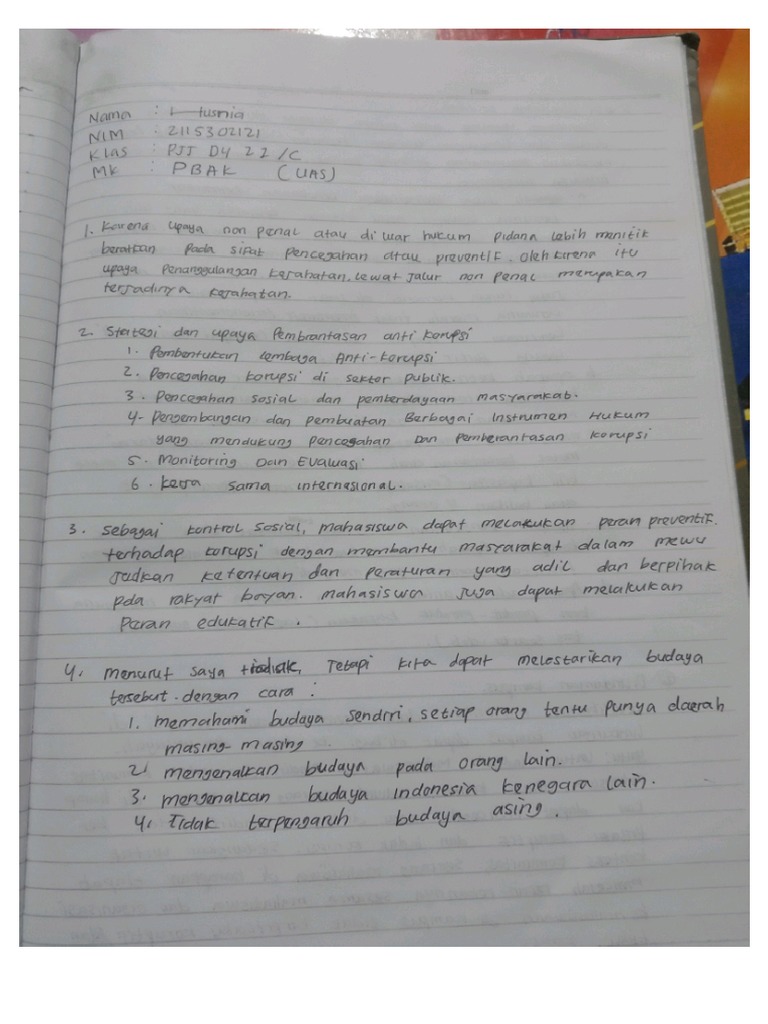 Nama : Husnia
NIM : 2115302121
Klas : PJJ D4 22/C
MK : PBAK (UAS)
1. Karena upaya non penal atau di luar hukum pidana lebih menitik
beratkan pada sifat pencegahan atau preventif. oleh kirena itu
upaya penanggulangan kejahatan, lewat jalur non penal merupakan
terjadinya kejahatan.
2. Strategi dan upaya Pembrantasan anti korupsi
1. Pembentukan lembaga Anti-korupsi
2. Pencegahan korupsi di sektor publik.
3. Pencegahan sosial dan pemberdayaan masyarakab.
4- Pengembangan dan pembuatan Berbagai Instrumen Hukum
yang mendukung pencegahan Dan Pemberantasan korupsi
5. Monitoring Dan Evaluasi
6. kerja sama internasional.
3. sebagai kontrol sosial, mahasiswa dapat melakukan peran preventif.
terhadap korupsi dengan membantu masyarakat dalam mewu
judkan ketentuan dan peraturan yang adil dan berpihak
pda rakyat bayan. mahasiswa juga dapat melakukan
Peran edukatif.
4. menurut saya tidak, Tetapi kita dapat melestarikan budaya
tersebut. dengan cara :
1. memahami budaya sendrri, setiap orang tentu punya daerah
masing-masing.
2. mengenalkan budaya pada orang lain.
3. mengenalkan budaya indonesia kenegara lain.
4. Tidak terpengaruh budaya asing.